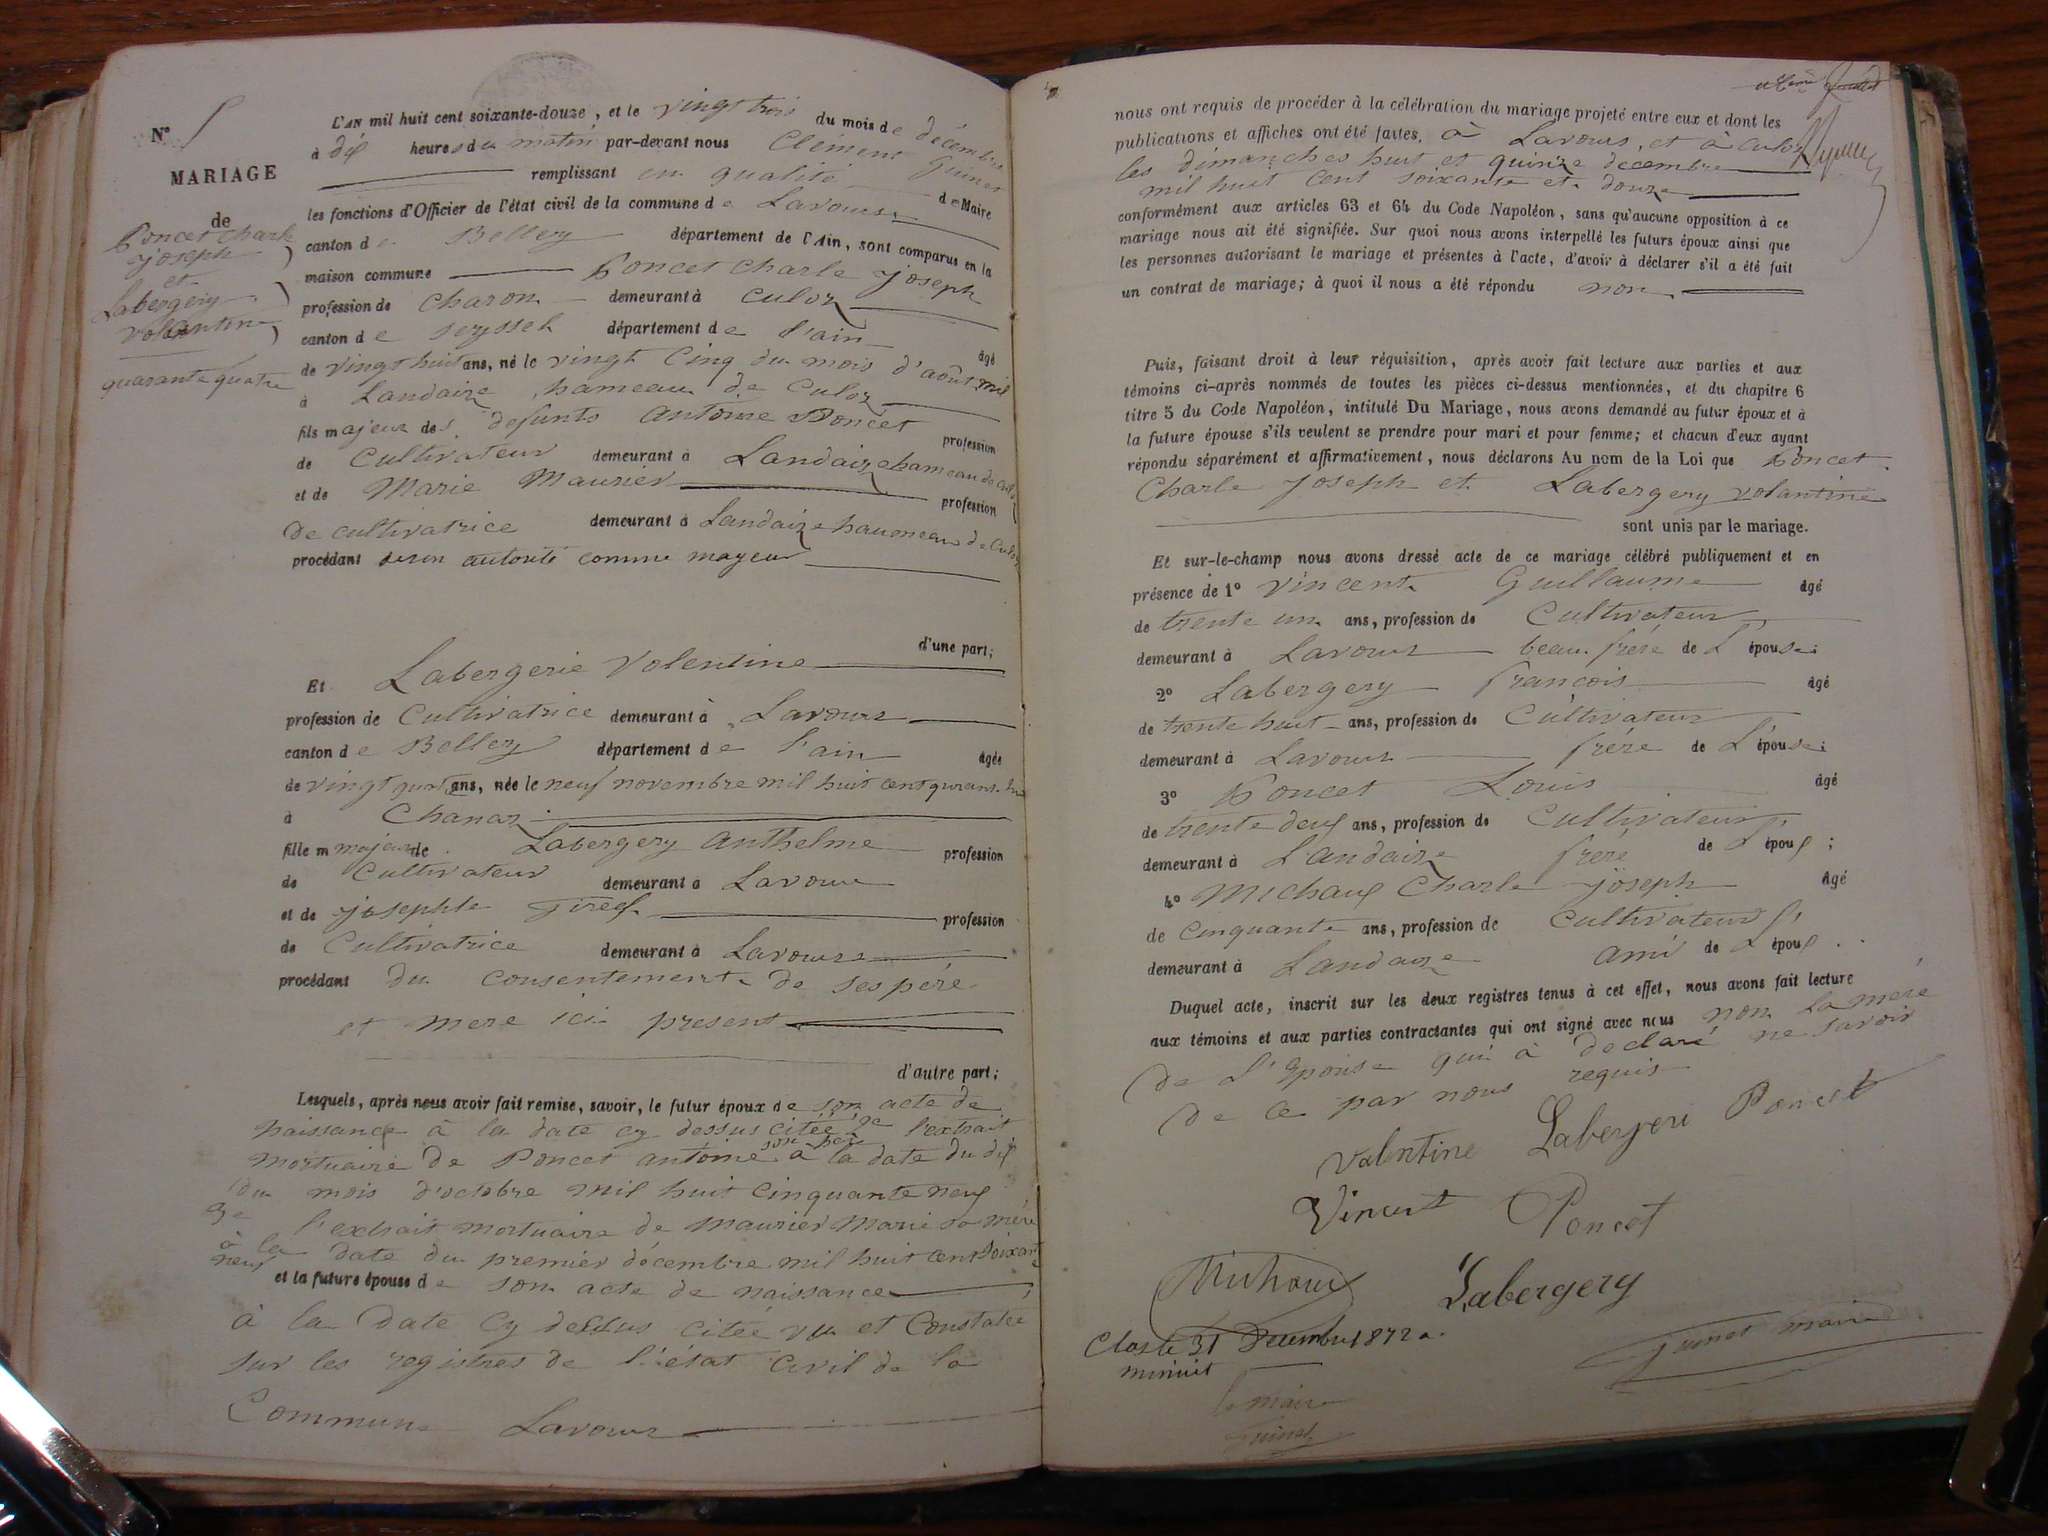 N° 5
MARIAGE
de
Poncet Charle
joseph
et
Labergery
volantine
quarante quatre
L'AN mil huit cent soixante-douze, et le vingt trois du mois de décembre
à dix heures du matin par-devant nous Clément Guinet
remplissant en qualité de Maire
les fonctions d'Officier de l'état civil de la commune de Lavours
canton de Belley département de l'Ain, sont comparus en la
maison commune Poncet Charle joseph
profession de charon demeurant à Culoz
canton de seyssel département de l'ain âgé
de vingt huit ans, né le vingt Cinq du mois d'août mil
à Landaize hameau de Culoz
fils majeur des defunts antoine Poncet profession
de Cultivateur demeurant à Landaize hameau de Culoz
et de Marie Maurier profession
de cultivatrice demeurant à Landaize haumeau de Culoz
procédant de son autorité comme mayeur
d'une part;
Et Labergerie Volentine
profession de Cultivatrice demeurant à Lavours
canton de Belley département de l'ain âgée
de vingt quat ans, née le neuf novembre mil huit cent
à Chanaz
fille majeur de Labergery Anthelme profession
de Cultivateur demeurant à Lavours
et de josephte Tiref profession
de Cultivatrice demeurant à Lavours
procédant du consentement de ses pére
et mere ici present
d'autre part;
Lesquels, après nous avoir fait remise, savoir, le futur époux de son acte de
naissance à la date cy dessus citée 2e l'extrait
mortuaire de Poncet antoine son père à la date du dix
du mois d'octobre mil huit Cinquante neuf
3e l'extrait mortuaire de Maurier Marie sa mére
à la date du premier décembre mil huit cent soixante
neuf et la future épouse de son acte de naissance
à la date Cy dessus citée vu et Constatée
sur les registres de l'état Civil de la
Commune Lavours
nous ont requis de procéder à la célébration du mariage projeté entre eux et dont les
publications et affiches ont été faites, à Lavours, et à Culoz
les dimanches huit et quinze decembre
mil huit cent soixante et douze
conformément aux articles 63 et 64 du Code Napoléon, sans qu'aucune opposition à ce
mariage nous ait été signifiée. Sur quoi nous avons interpellé les futurs époux ainsi que
les personnes autorisant le mariage et présentes à l'acte, d'avoir à déclarer s'il a été fait
un contrat de mariage; à quoi il nous a été répondu non
Puis, faisant droit à leur réquisition, après avoir fait lecture aux parties et aux
témoins ci-après nommés de toutes les pièces ci-dessus mentionnées, et du chapitre 6
titre 5 du Code Napoléon, intitulé Du Mariage, nous avons demandé au futur époux et à
la future épouse s'ils veulent se prendre pour mari et pour femme; et chacun d'eux ayant
répondu séparément et affirmativement, nous déclarons Au nom de la Loi que Poncet
Charle joseph et Labergery volantine
sont unis par le mariage.
Et sur-le-champ nous avons dressé acte de ce mariage célébré publiquement et en
présence de 1° Vincent Guillaume âgé
de trente un ans, profession de Cultivateur
demeurant à Lavours beau frére de L'épouse;
2° Labergery francois âgé
de trente huit ans, profession de Cultivateur
demeurant à Lavours frére de L'épouse;
3° Poncet Louis âgé
de trente deux ans, profession de Cultivateur
demeurant à Landaize frére de L'époux;
4° Michaux Charle joseph âgé
de Cinquante ans, profession de Cultivateur
demeurant à Landaize ami de L'époux
Duquel acte, inscrit sur les deux registres tenus à cet effet, nous avons fait lecture
aux témoins et aux parties contractantes qui ont signé avec nous non la mere
de L'Epouse qui à declaré ne savoir
de ce par nous requis
Valentine Labergeri Poncet
Vincent Poncet
Michoux Labergery
Clos le 31 Decembre 1872 a
minuit
Guinet maire
le maire
Guinet